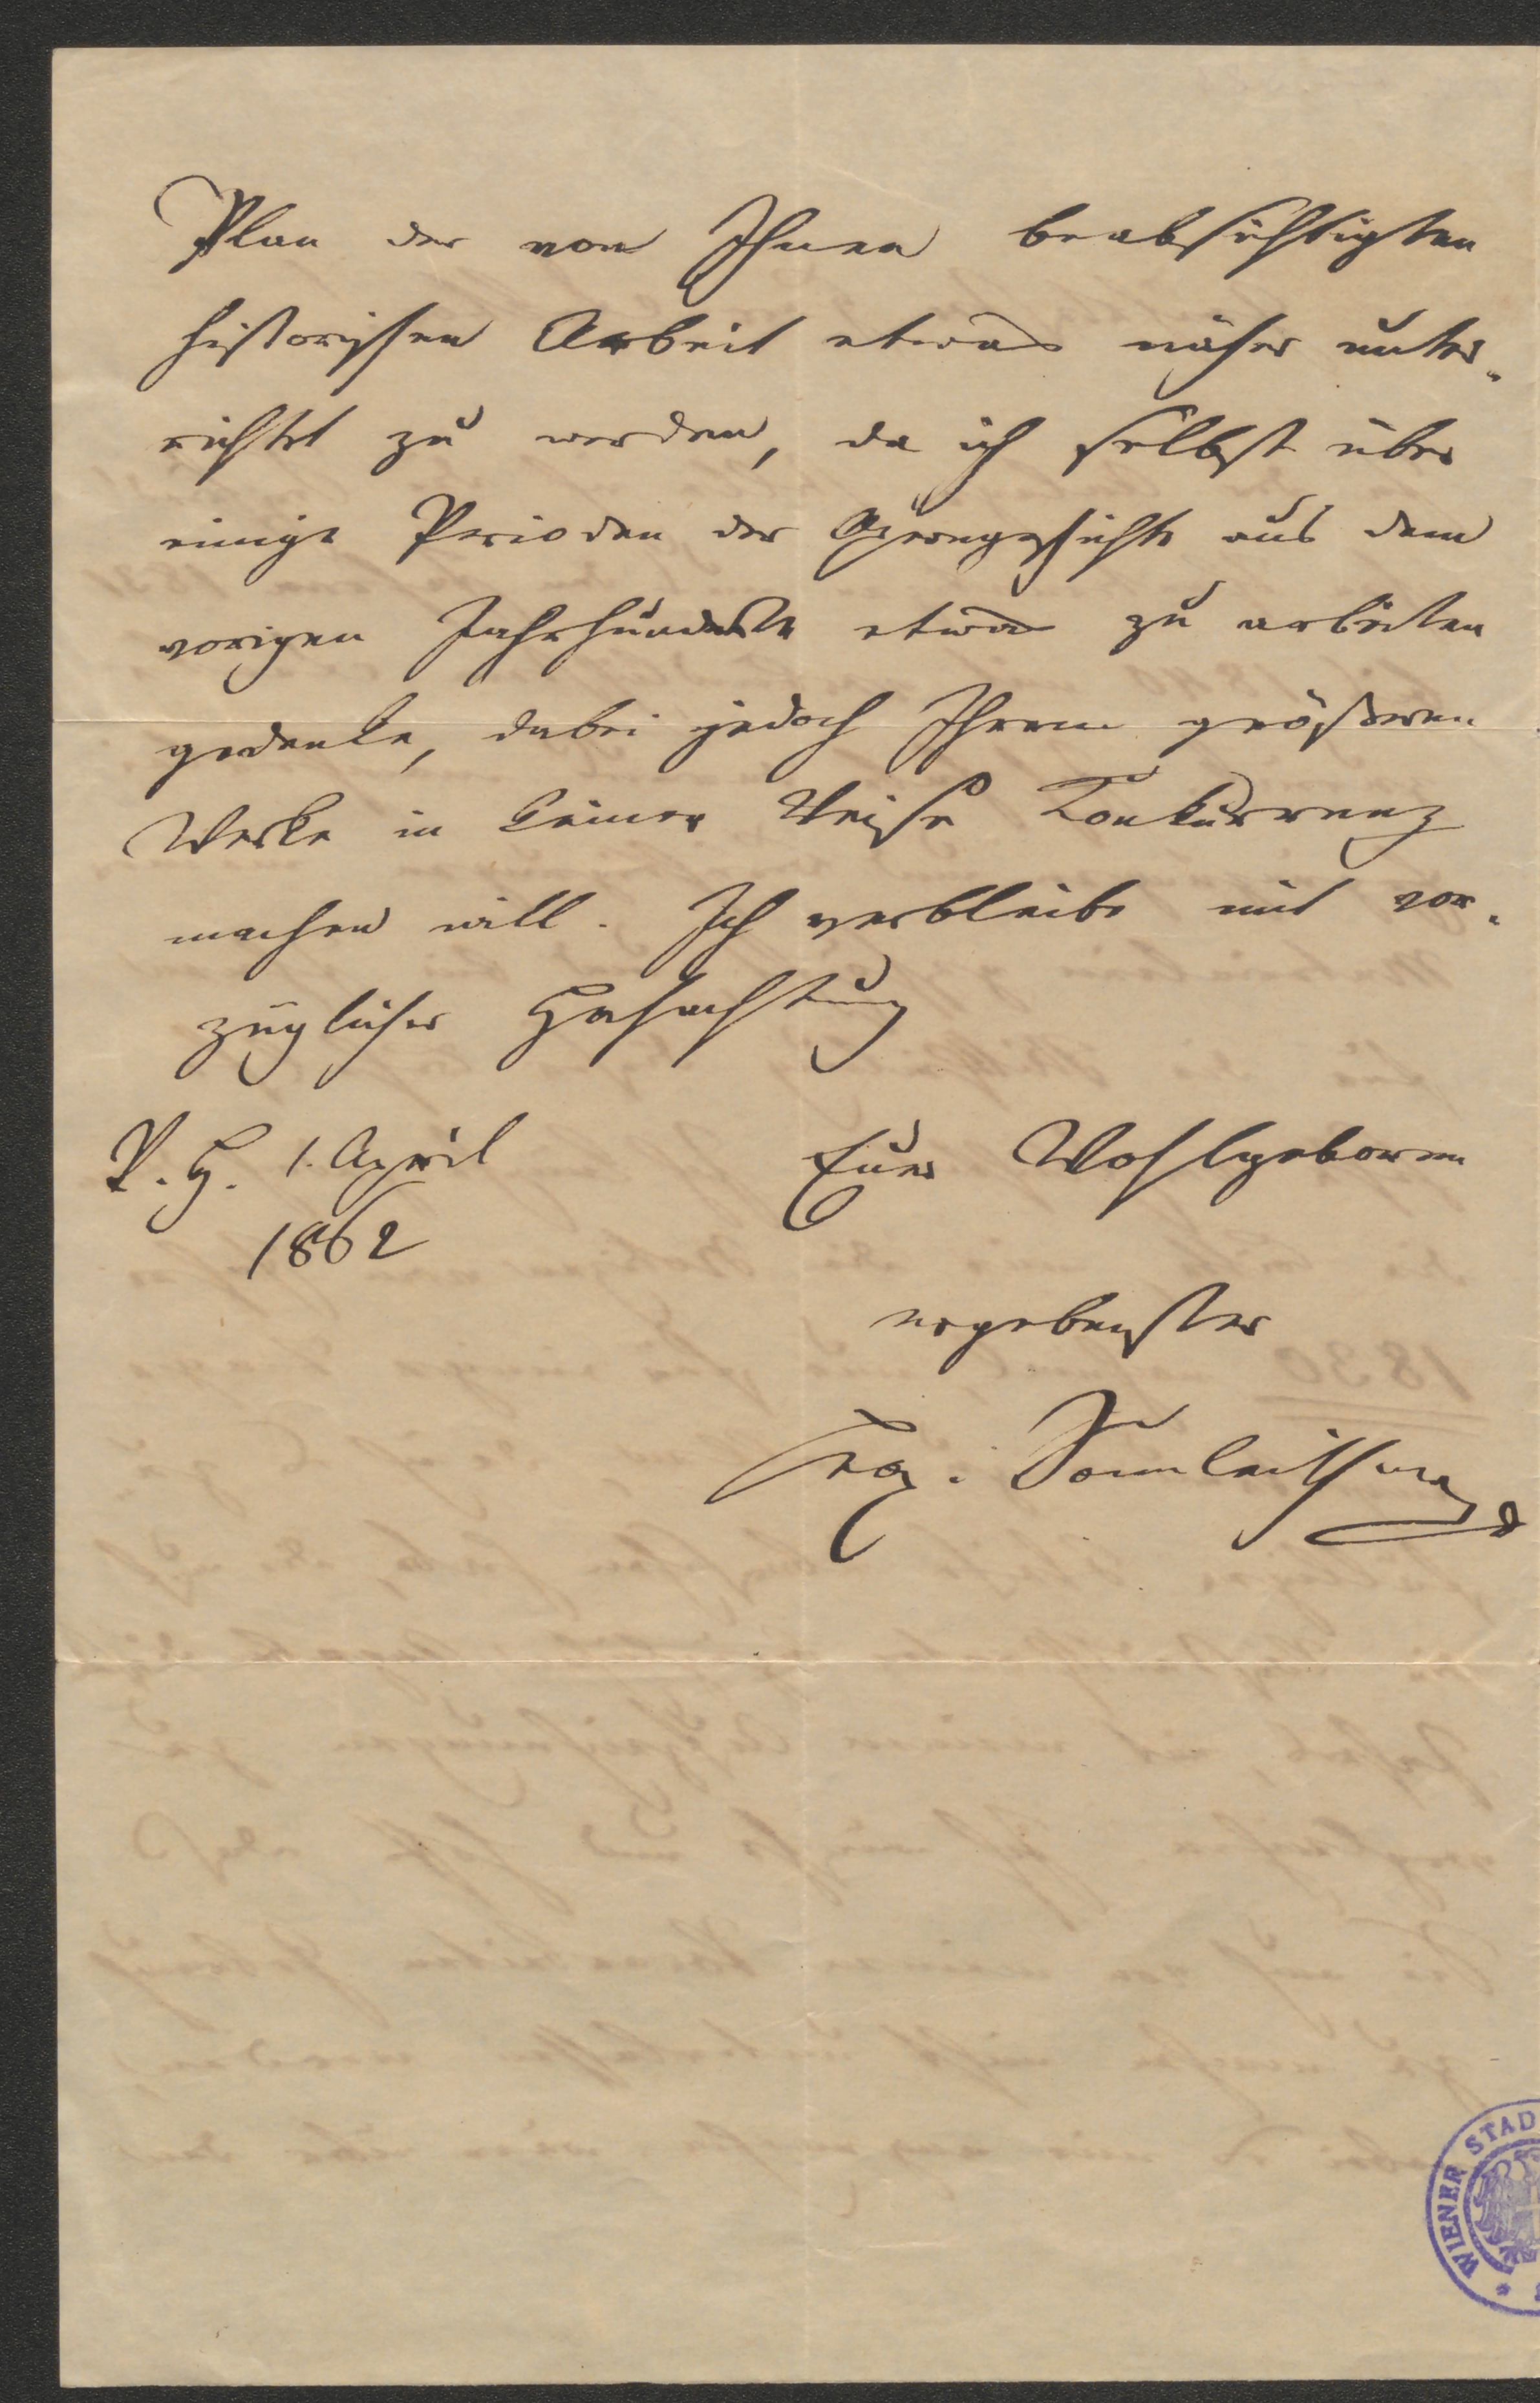 Plan der von Ihnen beabsichtigten
historischen Arbeit etwas näher unter-
richtet zu werden, da ich selbst über
einige Perioden der Operngeschichte aus dem
vorigen Jahrhunderte etwas zu arbeiten
gedenke, dabei jedoch Ihrem größeren
Werke in keiner Weise Konkurrenz
machen will. Ich verbleibe mit vor-
züglicher Hochachtung
V. H. 1. April
1862
Euer Wohlgeboren
ergebenster
Sonnleithner
WIENER STAD